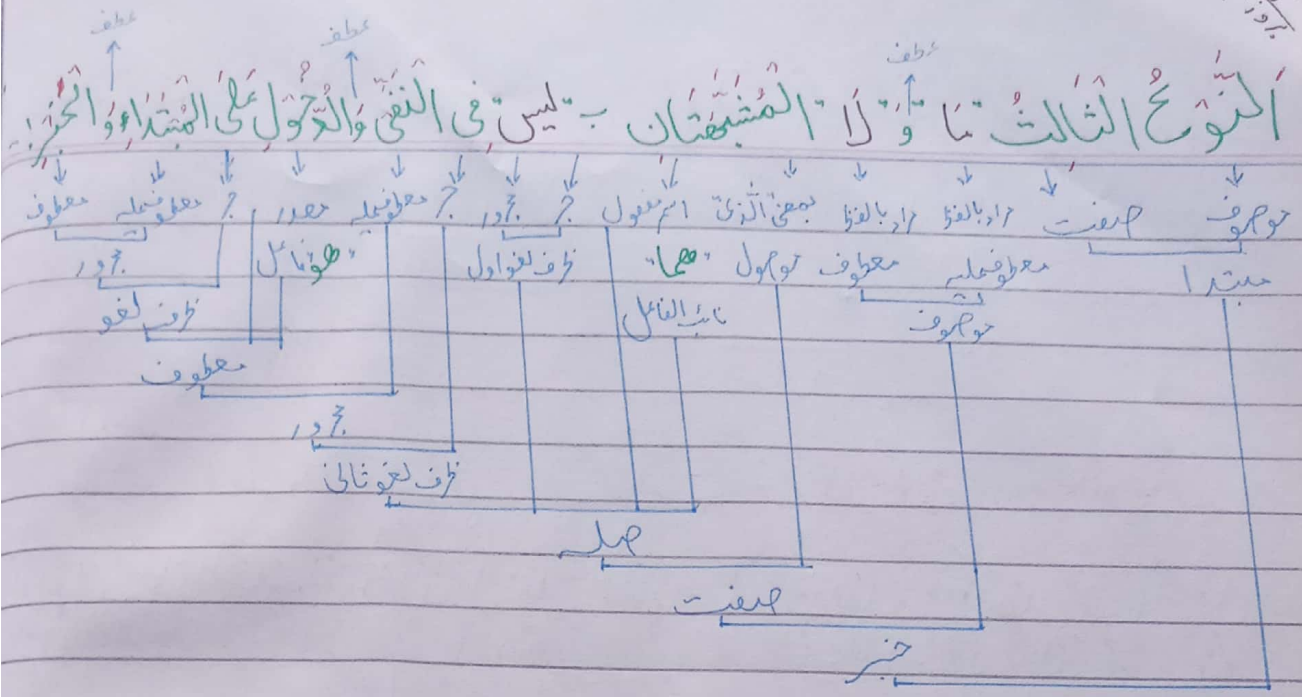 بروز
عطف عطف عطف
اَلنَّوْعُ الثَّالِثُ مَا وَ لَا الْمُشَبَّهَتَانِ بِلَيْسَ فِي النَّفْيِ وَالدُّخُوْلِ عَلَى الْمُبْتَدَاءِ وَ الْخَبَرِ
موصوف صفت مراد بالفظ مراد بالفظ بمعنی الّذی اسم مفعول جر مجرور جر معطوفعلیہ مصدر جر معطوفعلیہ معطوف
مبتدا معطوفعلیہ معطوف موصول "هما" ظرف لغو اول "هو" فاعل مجرور
موصوف نائب الفاعل ظرف لغو
معطوف
مجرور
ظرف لغو ثانی
صلہ
صفت
خبر